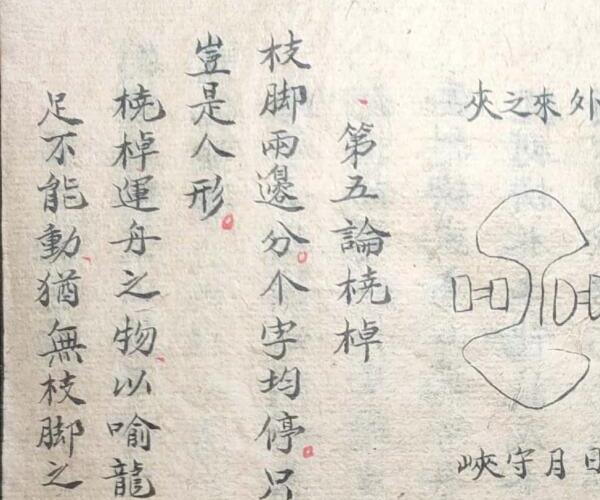 外來之夾
日月守峽
第五論橈棹
枝脚兩邊分个字均停只
豈是人形
橈棹運舟之物以喻龍
足不能動猶無枝脚之